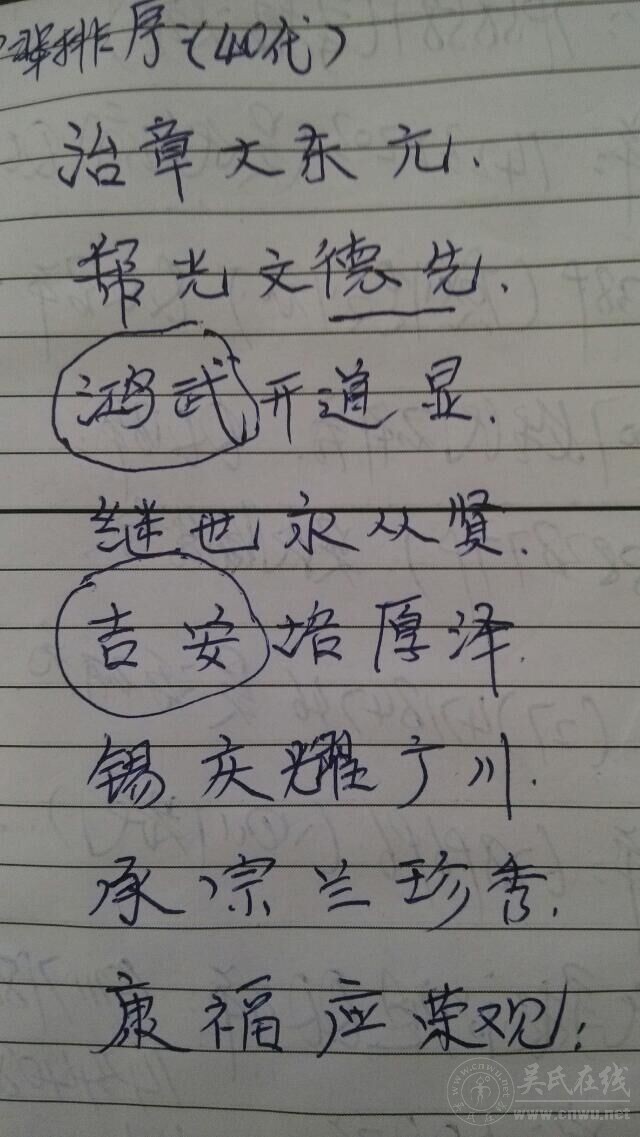 辈排序(40代)
治章大东元.
帮光文德先.
鸿武开道显.
继世永从贤.
吉安培厚泽.
锡庆耀广川.
承宗兰珍秀.
康福应荣观;
吴氏在线
www.cnwu.net